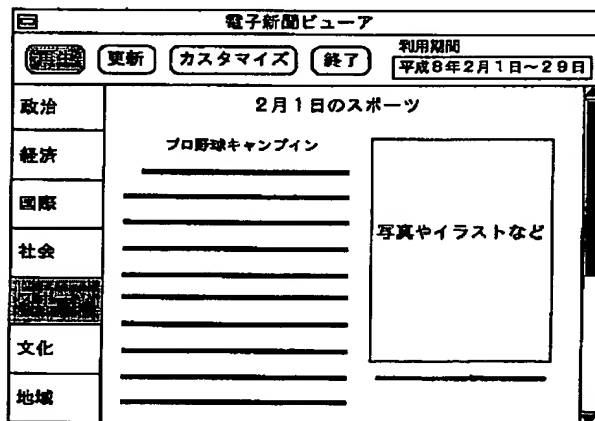 電子新聞ビューア
更新 カスタマイズ 終了
利用期間
平成8年2月1日~29日
政治
経済
国際
社会
文化
地域
2月1日のスポーツ
プロ野球キャンプイン
写真やイラストなど